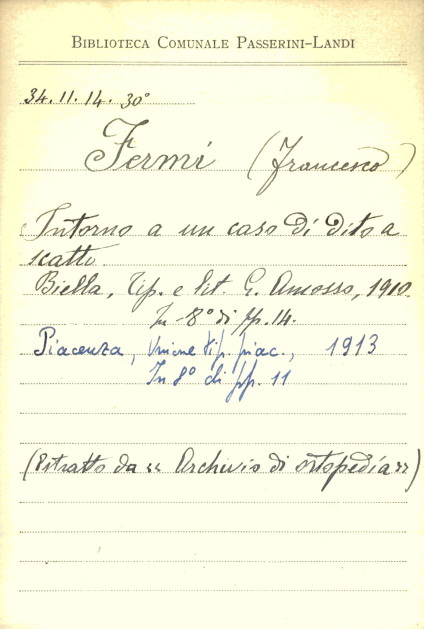 BIBLIOTECA COMUNALE PASSERINI-LANDI
34.11.14.30°
Fermi (Francesco)
Intorno a un caso di dito a
scatto.
Biella, Tip. e lit. G. Amosso, 1910.
In -8° di pp. 14.
Piacenza, Unione tip. piac., 1913
In 8° di pp. 11
(Estratto da « Archivio di ortopedia »)